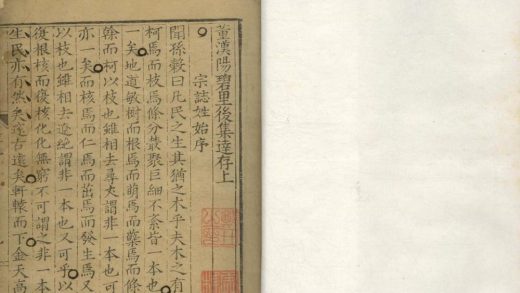 董漢陽碧里後集達存上
宗誌姓始序
聞孫穀曰凡民之生其猶之木乎夫木之有
柯焉而核焉條分叢聚巨細不紊皆一本也
一矣地道敏樹而根焉而萌焉而蘖焉而
幹而柯以枝也雖相去尋丈謂非一本也可
亦一矣而核焉而仁焉而茁焉而發生焉又
以枝也雖相去遼絕謂非一本也又可乎以
復根核而復核化化無窮不可謂之非一本
生民亦有然矣邃古遠矣軒轅而下金天高